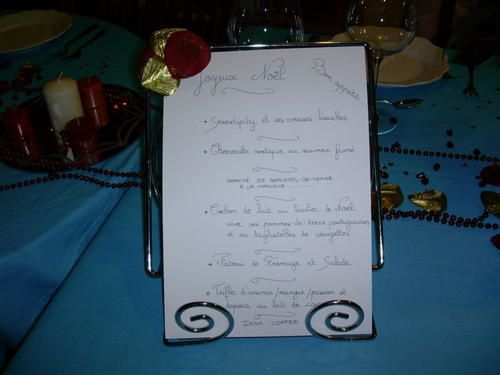 Joyeux Noël
Bon appétit
• Serendipity et ses amuses-bouches
• Cheesecake nordique au saumon fumé
GRANITÉ DE BEAUMES-DE-VENISE
À LA MANGUE
• Cochon de lait au barbec de Noël
avec ses pommes-de-terre portugaises
et ses tagliatelles de courgettes
• Plateau de Fromage et Salade
• Trifle d'ananas/mangue/passion et
tapioca au lait de
IRISH COFFEE